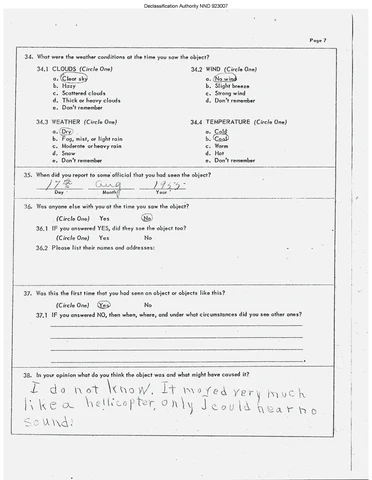 Declassification Authority NND 923007
Page 7
34. What were the weather conditions at the time you saw the object?
34.1 CLOUDS (Circle One) 34.2 WIND (Circle One)
a. Clear sky a. No wind
b. Hazy b. Slight breeze
c. Scattered clouds c. Strong wind
d. Thick or heavy clouds d. Don't remember
e. Don't remember
34.3 WEATHER (Circle One) 34.4 TEMPERATURE (Circle One)
a. Dry a. Cold
b. Fog, mist, or light rain b. Cool
c. Moderate or heavy rain c. Warm
d. Snow d. Hot
e. Don't remember e. Don't remember
35. When did you report to some official that you had seen the object?
Aug
Day Month Year
36. Was anyone else with you at the time you saw the object?
(Circle One) Yes No
36.1 IF you answered YES, did they see the object too?
(Circle One) Yes No
36.2 Please list their names and addresses:
37. Was this the first time that you had seen an object or objects like this?
(Circle One) Yes No
37.1 IF you answered NO, then when, where, and under what circumstances did you see other ones?
38. In your opinion what do you think the object was and what might have caused it?
I do not know. It moved very much
like a hellicopter, only I could hear no
sound.